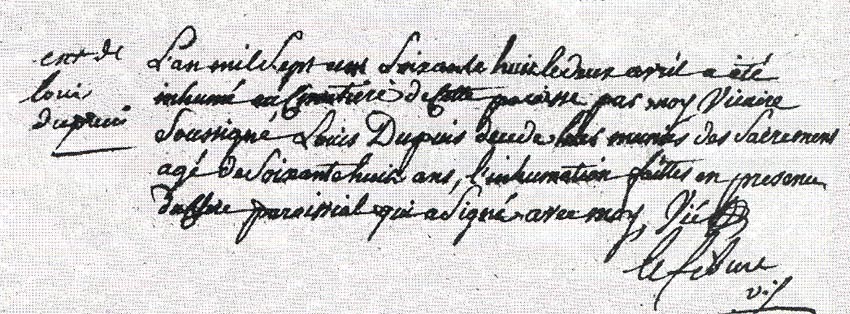 ent. de
louis
dupuis
L'an mil sept cent Soixante huit le deux avril a été
inhumé au Cimetière de Cette paroisse par moy Vicaire
Soussigné Louis Dupuis decede hier munis des Sacremens
agé de Soixante huit ans, l'inhumation faittes en presence
paroissial qui a Signé avec moy
lefebure
vic